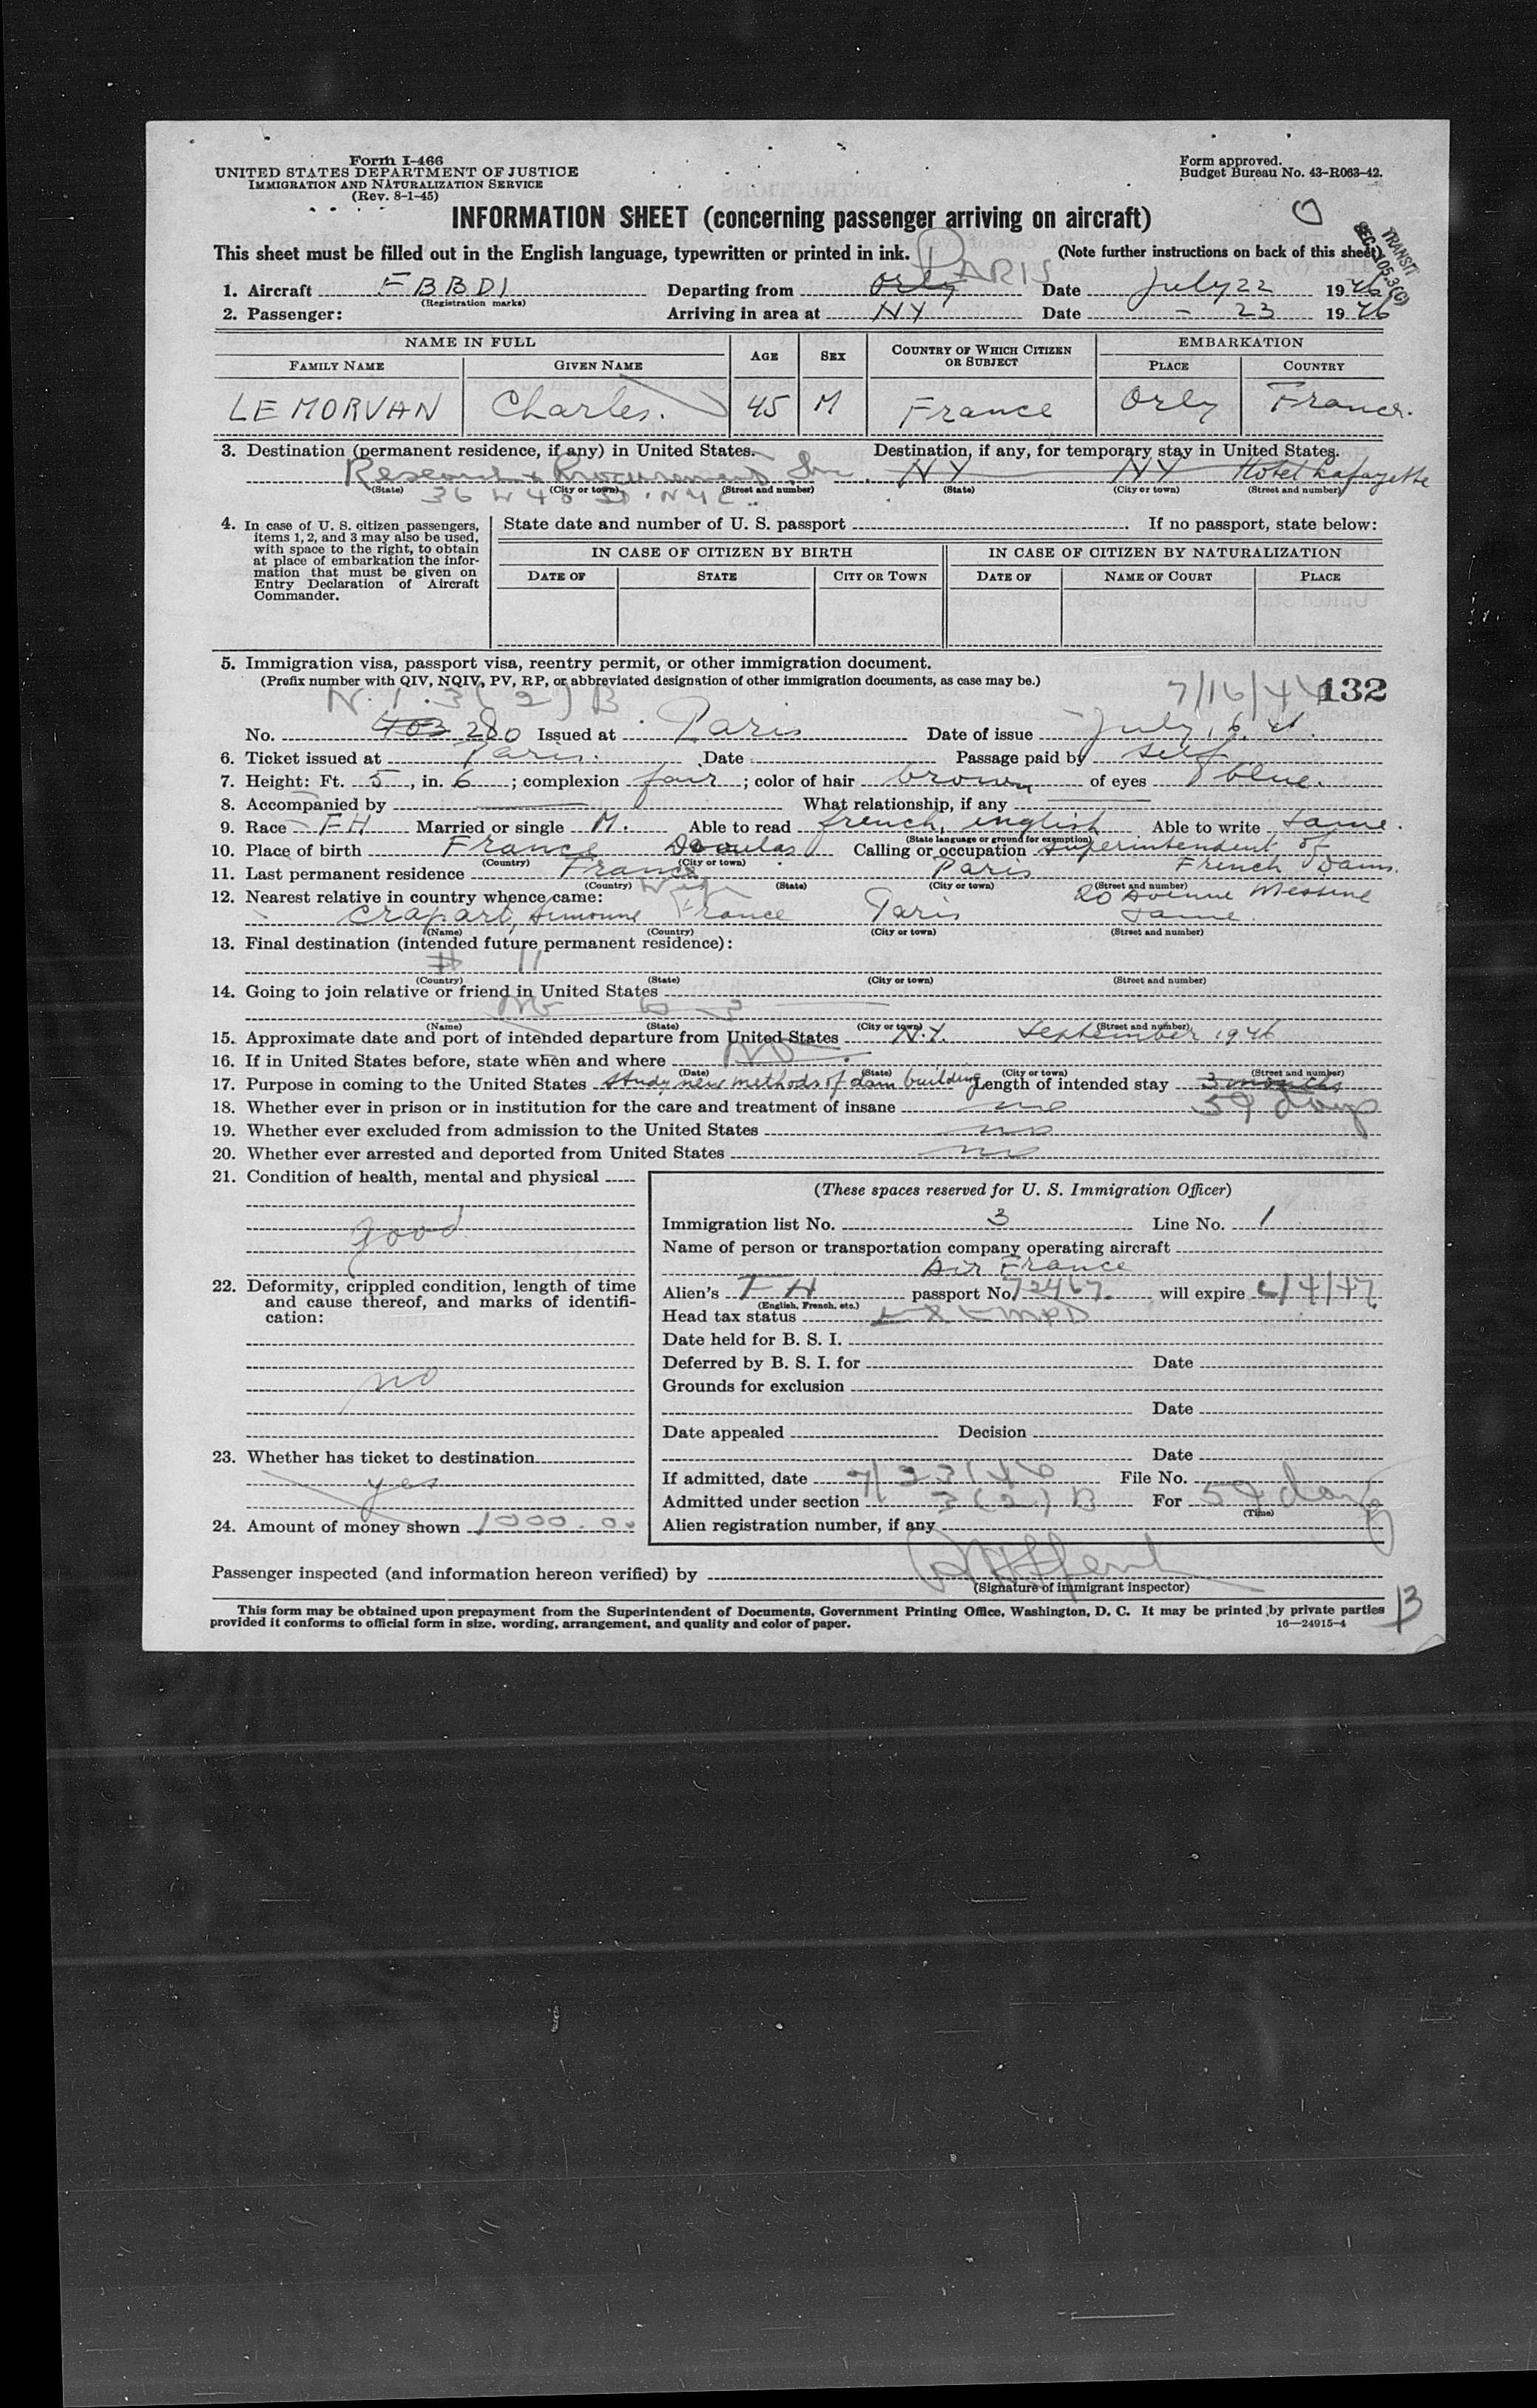 Form I-466
UNITED STATES DEPARTMENT OF JUSTICE
IMMIGRATION AND NATURALIZATION SERVICE
(Rev. 8-1-45)
Form approved.
Budget Bureau No. 43-R063-42.
INFORMATION SHEET (concerning passenger arriving on aircraft)
TRANSIT
This sheet must be filled out in the English language, typewritten or printed in ink. (Note further instructions on back of this sheet)
PARIS
1. Aircraft FBBDI Departing from Orly Date July 22 1946
(Registration marks)
2. Passenger: Arriving in area at NY Date - 23 1946
NAME IN FULL AGE SEX COUNTRY OF WHICH CITIZEN OR SUBJECT EMBARKATION
FAMILY NAME GIVEN NAME PLACE COUNTRY
LE MORVAN Charles. 45 M France Orly France.
3. Destination (permanent residence, if any) in United States. Destination, if any, for temporary stay in United States.
Research & Procurement Inc NY NY Hotel Lafayette
(State) (City or town) (Street and number) (State) (City or town) (Street and number)
36 W 48 St. NYC
4. In case of U. S. citizen passengers, items 1, 2, and 3 may also be used, with space to the right, to obtain at place of embarkation the information that must be given on Entry Declaration of Aircraft Commander.
State date and number of U. S. passport If no passport, state below:
IN CASE OF CITIZEN BY BIRTH IN CASE OF CITIZEN BY NATURALIZATION
DATE OF STATE CITY OR TOWN DATE OF NAME OF COURT PLACE
5. Immigration visa, passport visa, reentry permit, or other immigration document.
(Prefix number with QIV, NQIV, PV, RP, or abbreviated designation of other immigration documents, as case may be.)
N. I. 3(2)B 7/16/46 132
No. 403 280 Issued at Paris Date of issue July 16. 46.
6. Ticket issued at Paris. Date Passage paid by self
7. Height: Ft. 5, in. 6; complexion fair; color of hair brown of eyes blue.
8. Accompanied by What relationship, if any
9. Race FH Married or single M. Able to read french, english Able to write same.
(State language or ground for exemption)
10. Place of birth France Calling or occupation superintendent of
(Country) (City or town)
French Dams.
11. Last permanent residence France Paris
(Country) (State) (City or town) (Street and number)
20 Avenue Messine
12. Nearest relative in country whence came:
Wife
Crapart, Simonne France Paris same.
(Name) (Country) (City or town) (Street and number)
13. Final destination (intended future permanent residence):
# 11
(Country) (State) (City or town) (Street and number)
14. Going to join relative or friend in United States
(Name) (State) (City or town) (Street and number)
15. Approximate date and port of intended departure from United States N.Y. September 1946
16. If in United States before, state when and where NO
(Date) (State) (City or town) (Street and number)
17. Purpose in coming to the United States study new methods of dam building Length of intended stay 3 months
59 days
18. Whether ever in prison or in institution for the care and treatment of insane no
19. Whether ever excluded from admission to the United States no
20. Whether ever arrested and deported from United States no
21. Condition of health, mental and physical
good
22. Deformity, crippled condition, length of time and cause thereof, and marks of identification:
no
23. Whether has ticket to destination
yes
24. Amount of money shown 1000.0.
(These spaces reserved for U. S. Immigration Officer)
Immigration list No. 3 Line No. 1
Name of person or transportation company operating aircraft
Air France
Alien's FH passport No. 72467. will expire 6/4/47
(English, French, etc.)
Head tax status EXEMPD
Date held for B. S. I.
Deferred by B. S. I. for Date
Grounds for exclusion
Date
Date appealed Decision
Date
If admitted, date 7/23/46 File No.
Admitted under section 3(2)B For 59 days
(Time)
Alien registration number, if any
Passenger inspected (and information hereon verified) by
(Signature of immigrant inspector)
This form may be obtained upon prepayment from the Superintendent of Documents, Government Printing Office, Washington, D. C. It may be printed by private parties
provided it conforms to official form in size, wording, arrangement, and quality and color of paper. 16—24915-4
13